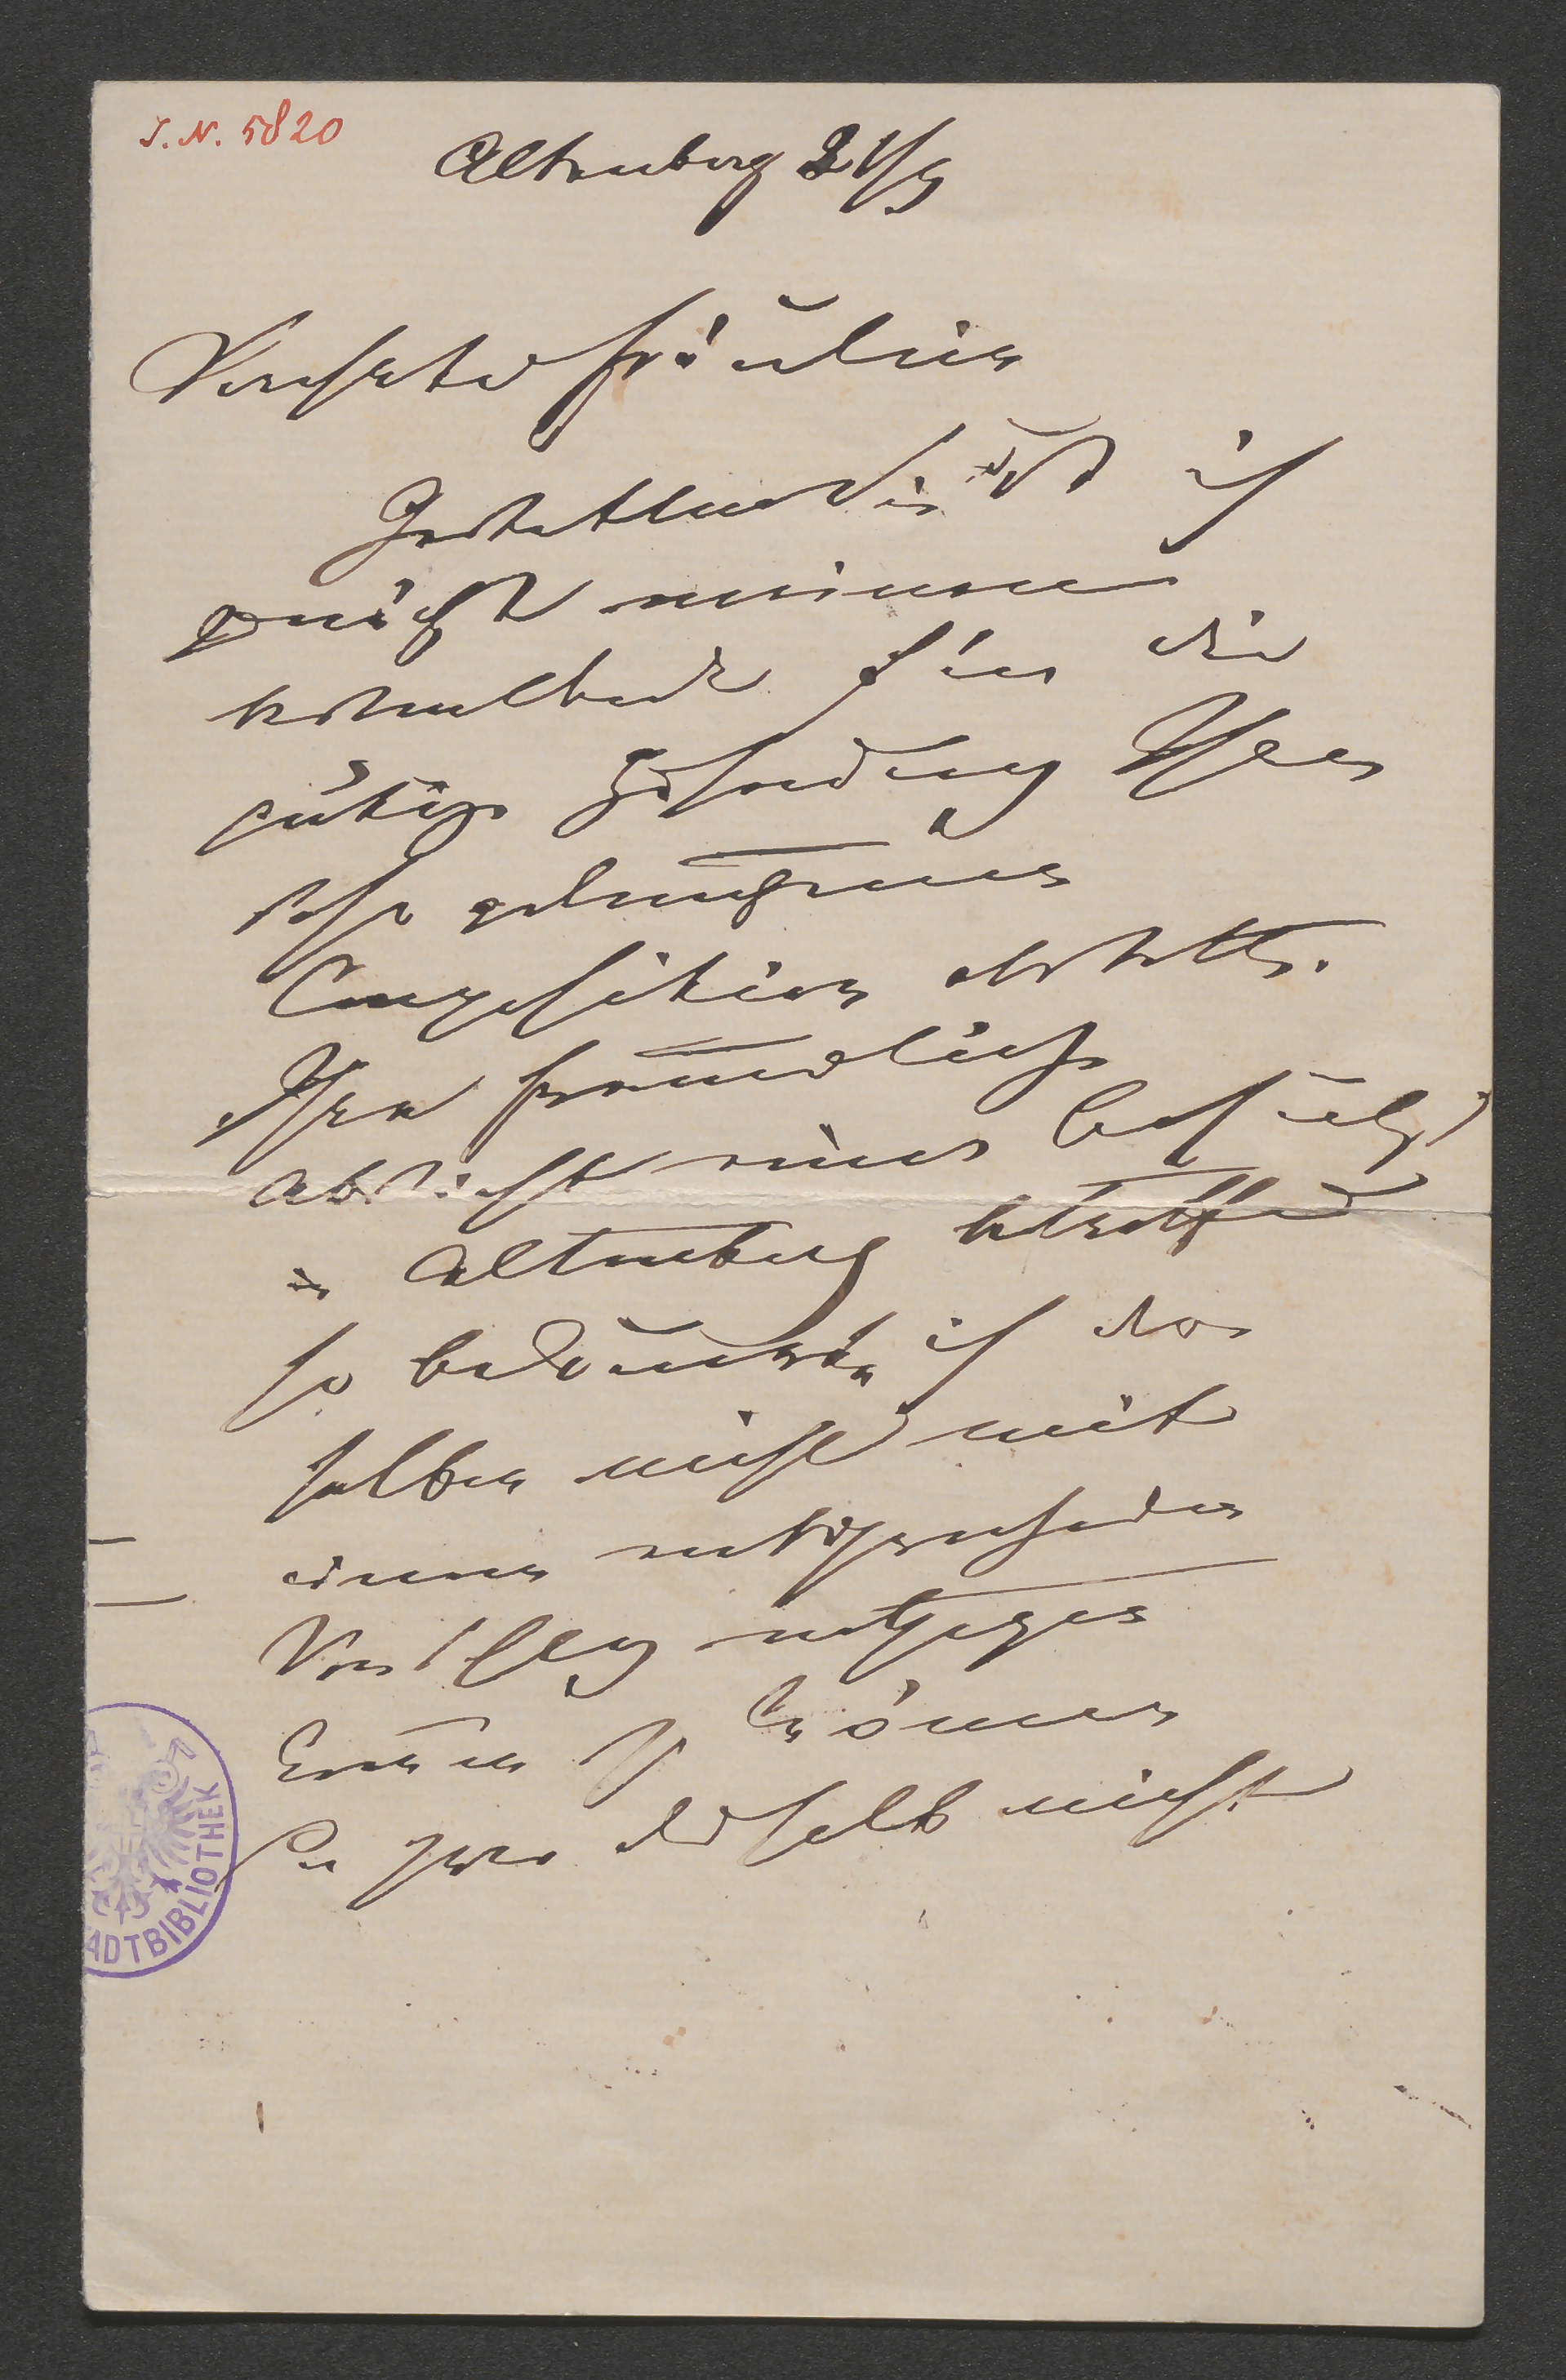 I. N. 5820
Altenberg 21/9
Verehrte Fräulein
Gestatten Sie daß ich
zunächst meinen
besten Dank für die
gütige Zusendung Ihrer
sehr gelungenen
Composition abstatte.
Ihre freundliche
Absicht eines Besuches
in Altenberg betreffend
so bedauere ich das
selben nicht mit
einem entsprechenden
Vorschlag entgegen
kommen zu können
da zwar deshalb nicht
ADTBIBLIOTHEK